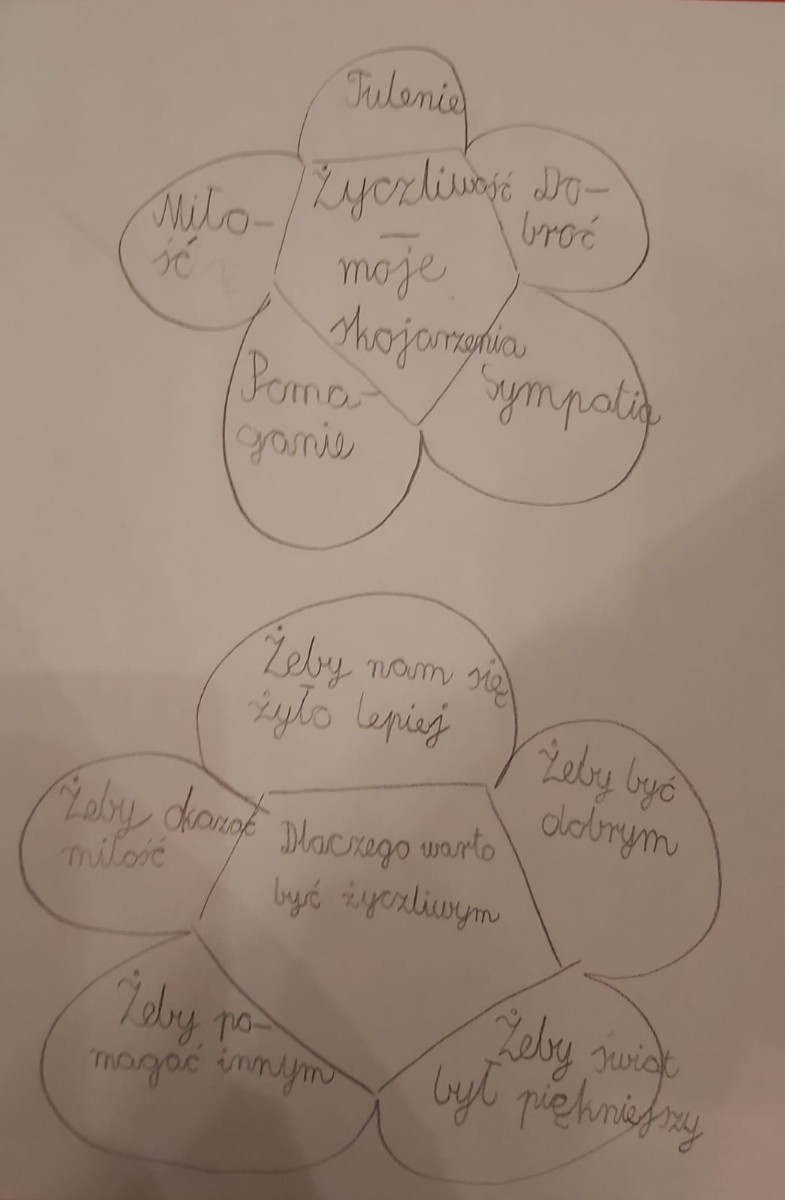 Tulenie
Życzliwość
—
moje
skojarzenia
Do-
broć
Sympatia
Poma-
ganie
Miło-
ść
Dlaczego warto
być życzliwym
Żeby nam się
żyło lepiej
Żeby być
dobrym
Żeby świat
był piękniejszy
Żeby po-
magać innym
Żeby okazać
miłość